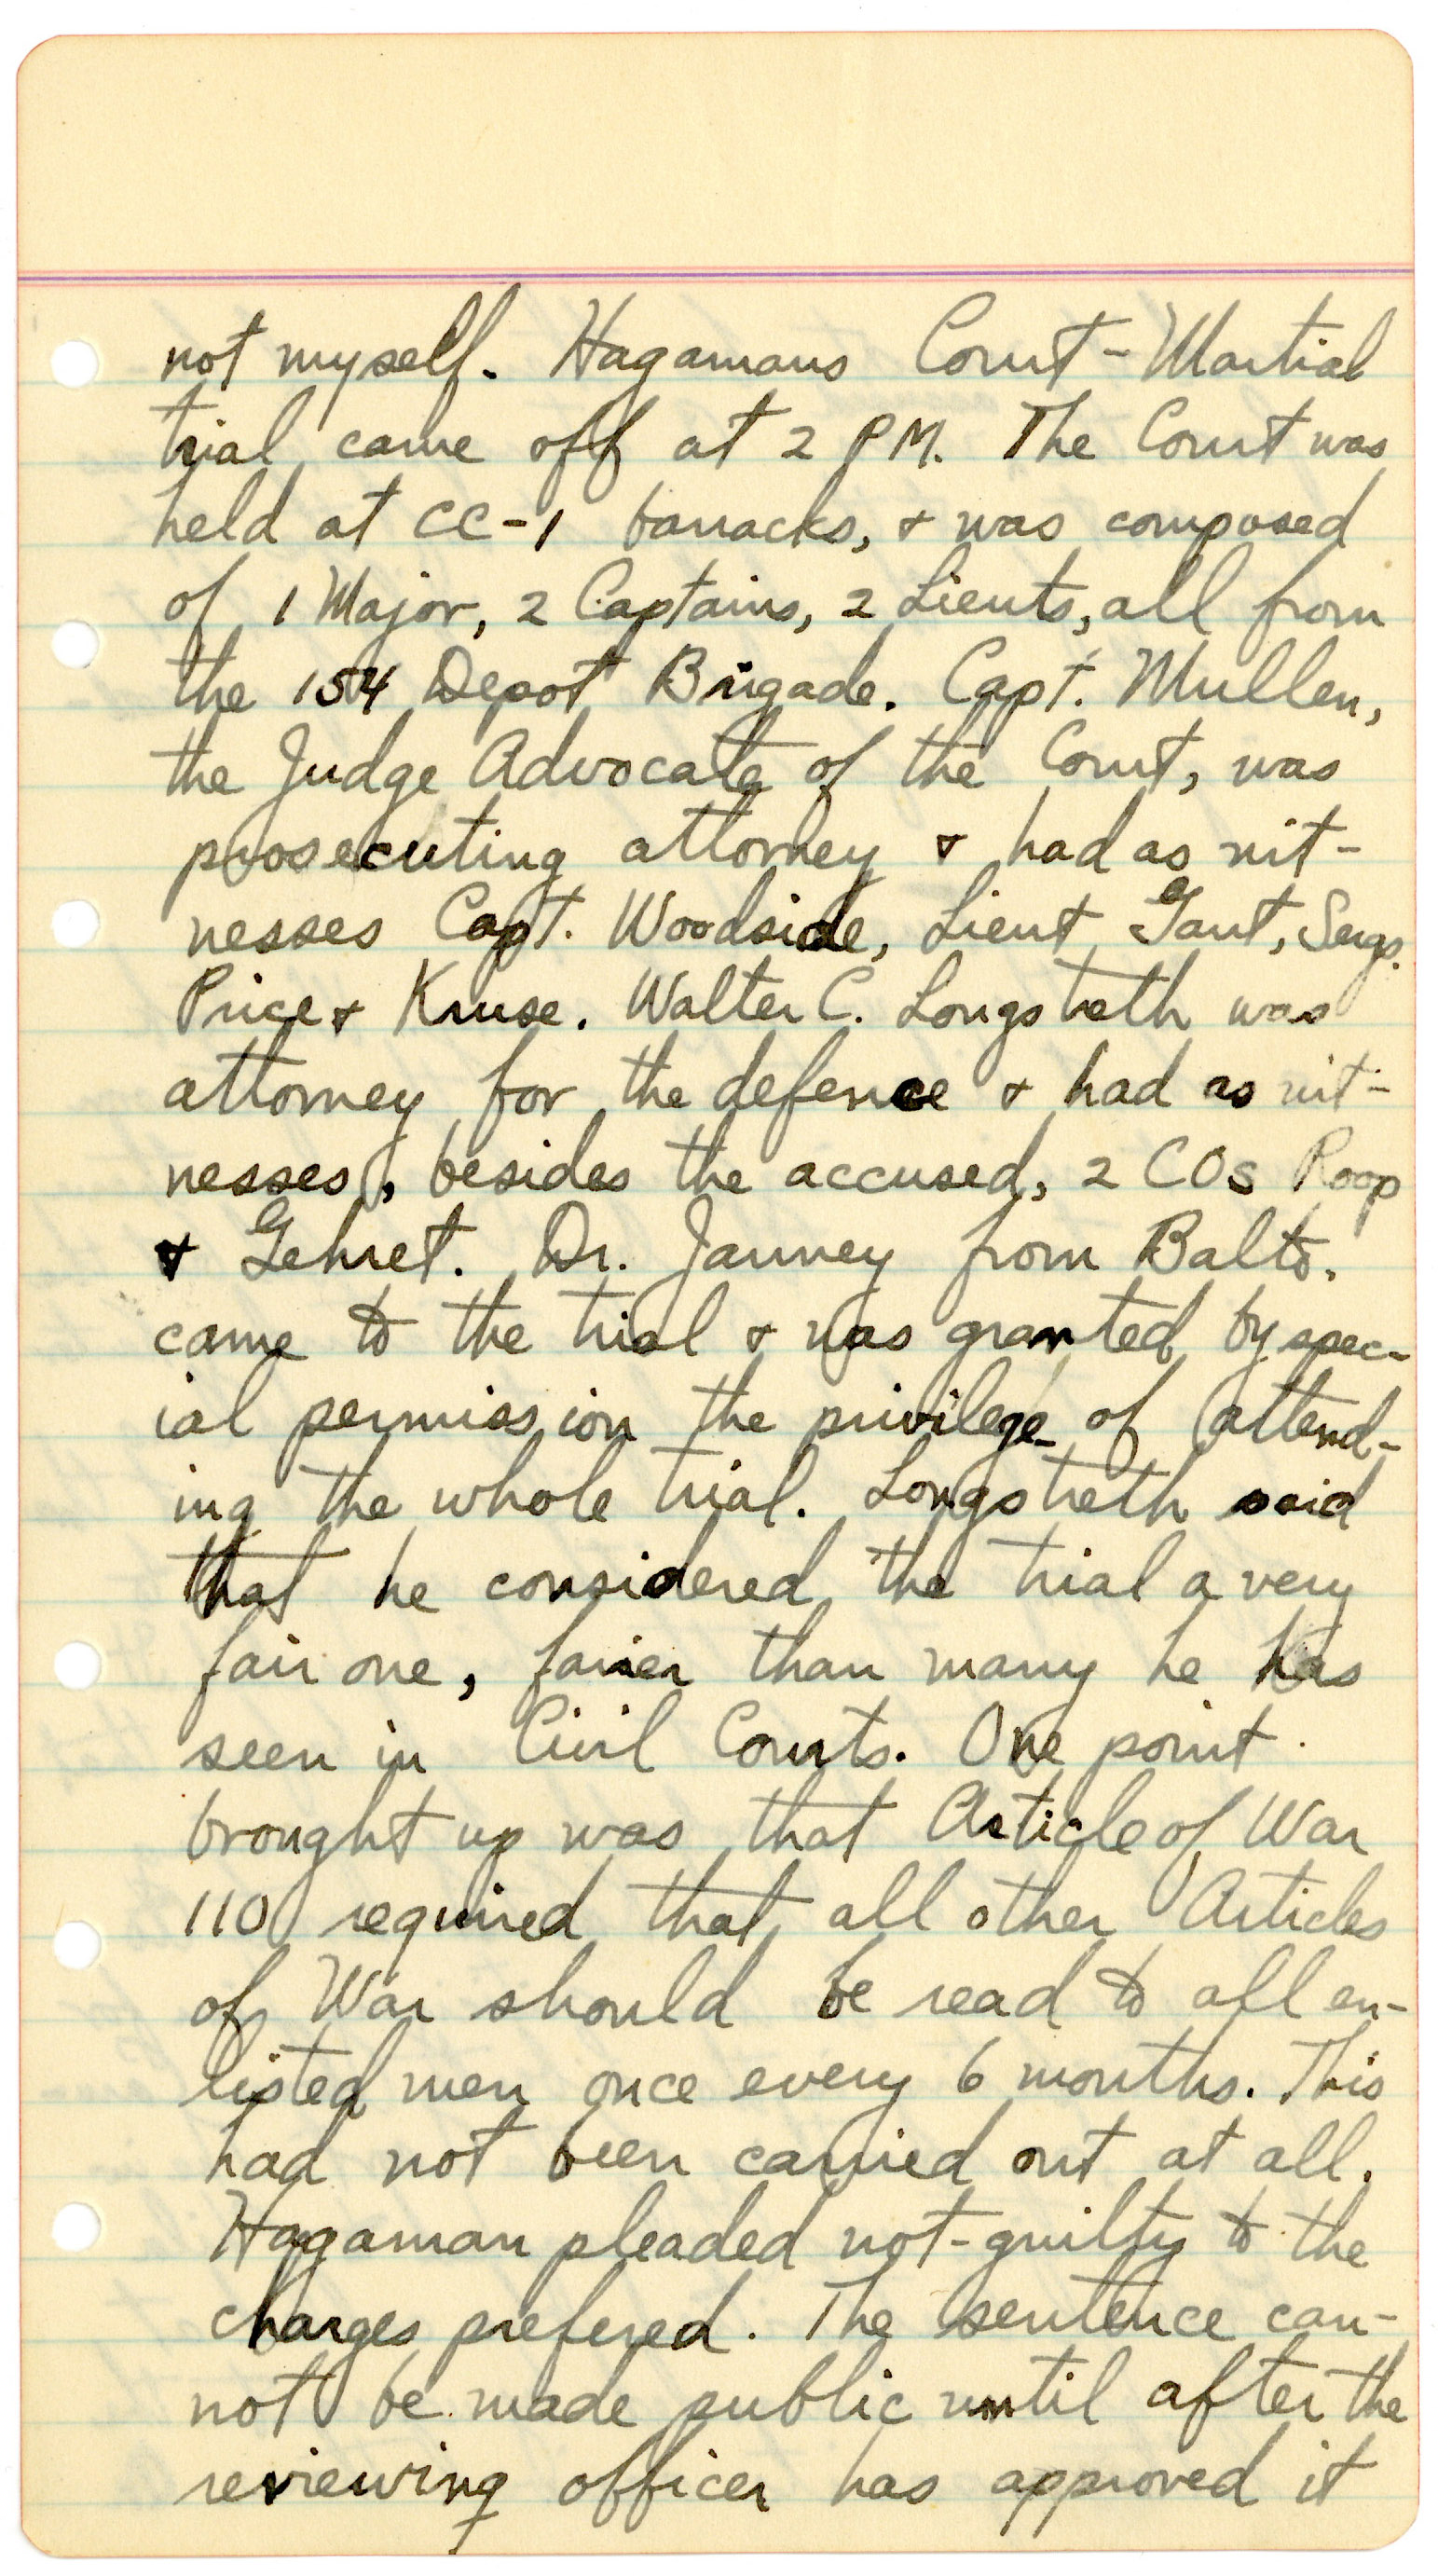 not myself. Hagamans Court-Martial
trial came off at 2 PM. The Court was
held at CC-1 barracks, & was composed
of 1 Major, 2 Captains, 2 Lieuts, all from
the 154 Depot Brigade. Capt. Mullen,
the Judge Advocate of the Court, was
prosecuting attorney & had as wit-
nesses Capt. Woodside, Lieut Gant, Sergs.
Price & Kruse. Walter C. Longstreth was
attorney for the defence & had as wit-
nesses, besides the accused, 2 COs Roop
& Gehret. Dr. Janney from Balto.
came to the trial & was granted by spec-
ial permission the privilege of attend-
ing the whole trial. Longstreth said
that he considered the trial a very
fair one, fairer than many he has
seen in Civil Courts. One point
brought up was that Article of War
110 required that all other Articles
of War should be read to all en-
listed men once every 6 months. This
had not been carried out at all.
Hagaman pleaded not-guilty to the
charges prefered. The sentence can-
not be made public until after the
reviewing officer has approved it